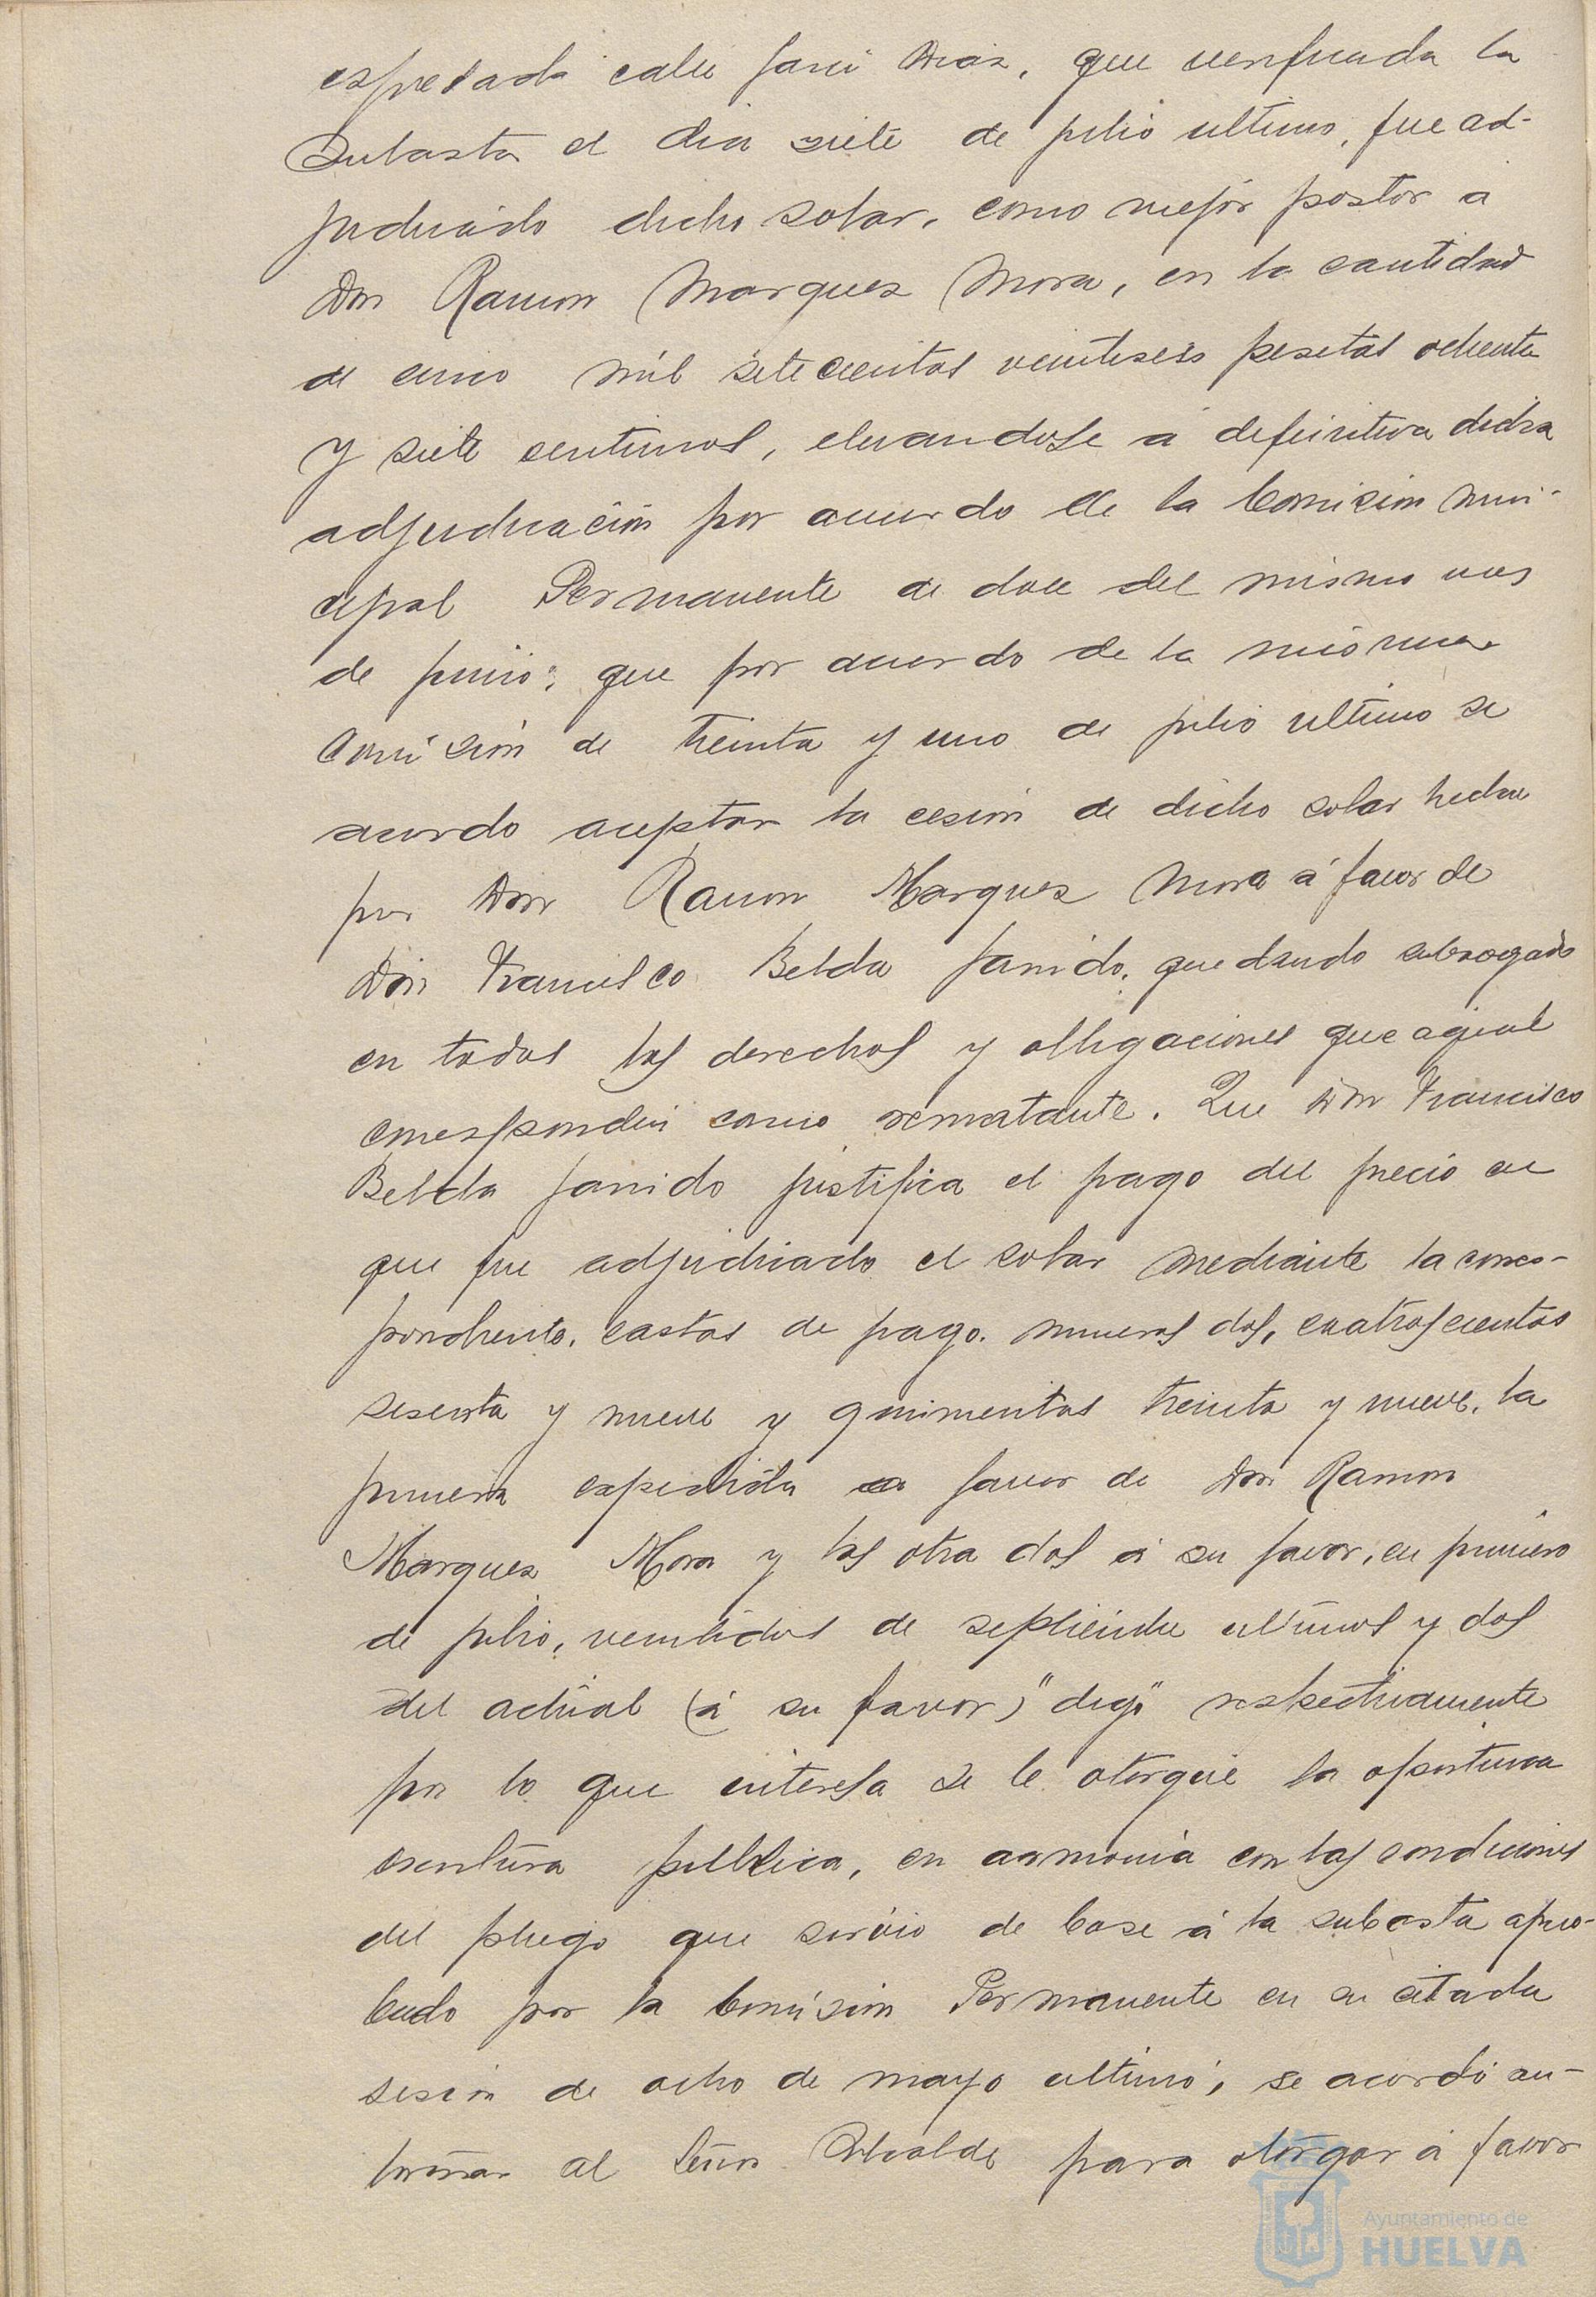 espresada calle Jani Dias, que verificada la
Subasta el dia siete de julio ultimo, fue ad-
judicado dicho solar, como mejor postor a
Don Ramon Marquez Mora, en la cantidad
de cinco mil setecientas veintiseis pesetas ochenta
y siete centimos, elevandose a definitiva dicha
adjudicación por acuerdo de la Comision Muni-
cipal Permanente de doce del mismo mes
de junio; que por acuerdo de la misma
Comisión de treinta y uno de julio ultimo se
acordo aceptar la cesión de dicho solar hecha
por Don Ramon Marquez Mora á favor de
Don Francisco Belda Janido, quedando subrogado
en todos los derechos y obligaciones que aquel
correspondia como rematante. Que Don Francisco
Belda Janido justifica el pago del precio en
que fue adjudicado el solar mediante la corres-
pondiente, cartas de pago. numeros dos, cuatroscientas
sesenta y nueve y quinientas treinta y nueve, la
primera expedida a favor de Don Ramon
Marquez Mora y las otra dos á su favor, en primero
de julio, veintidos de septiembre ultimos y dos
del actual (á su favor) "digo" respectivamente
por lo que interesa se le otorgue la oportuna
escritura publica, en armonia con las condiciones
del pliego que sirvio de base á la subasta apro-
bado por la Comision Permanente en su citada
sesion de ocho de mayo ultimo, se acordó au-
torizar al Señor Alcalde para otorgar á favor
Ayuntamiento de
HUELVA